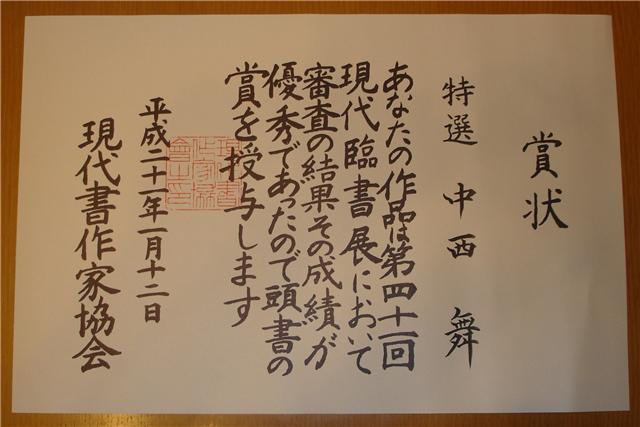 賞状
特選 中西 舞
あなたの作品は第四十一回
現代臨書展において
審査の結果その成績が
優秀であったので頭書の
賞を授与します
平成二十一年一月十二日
現代書作家協会